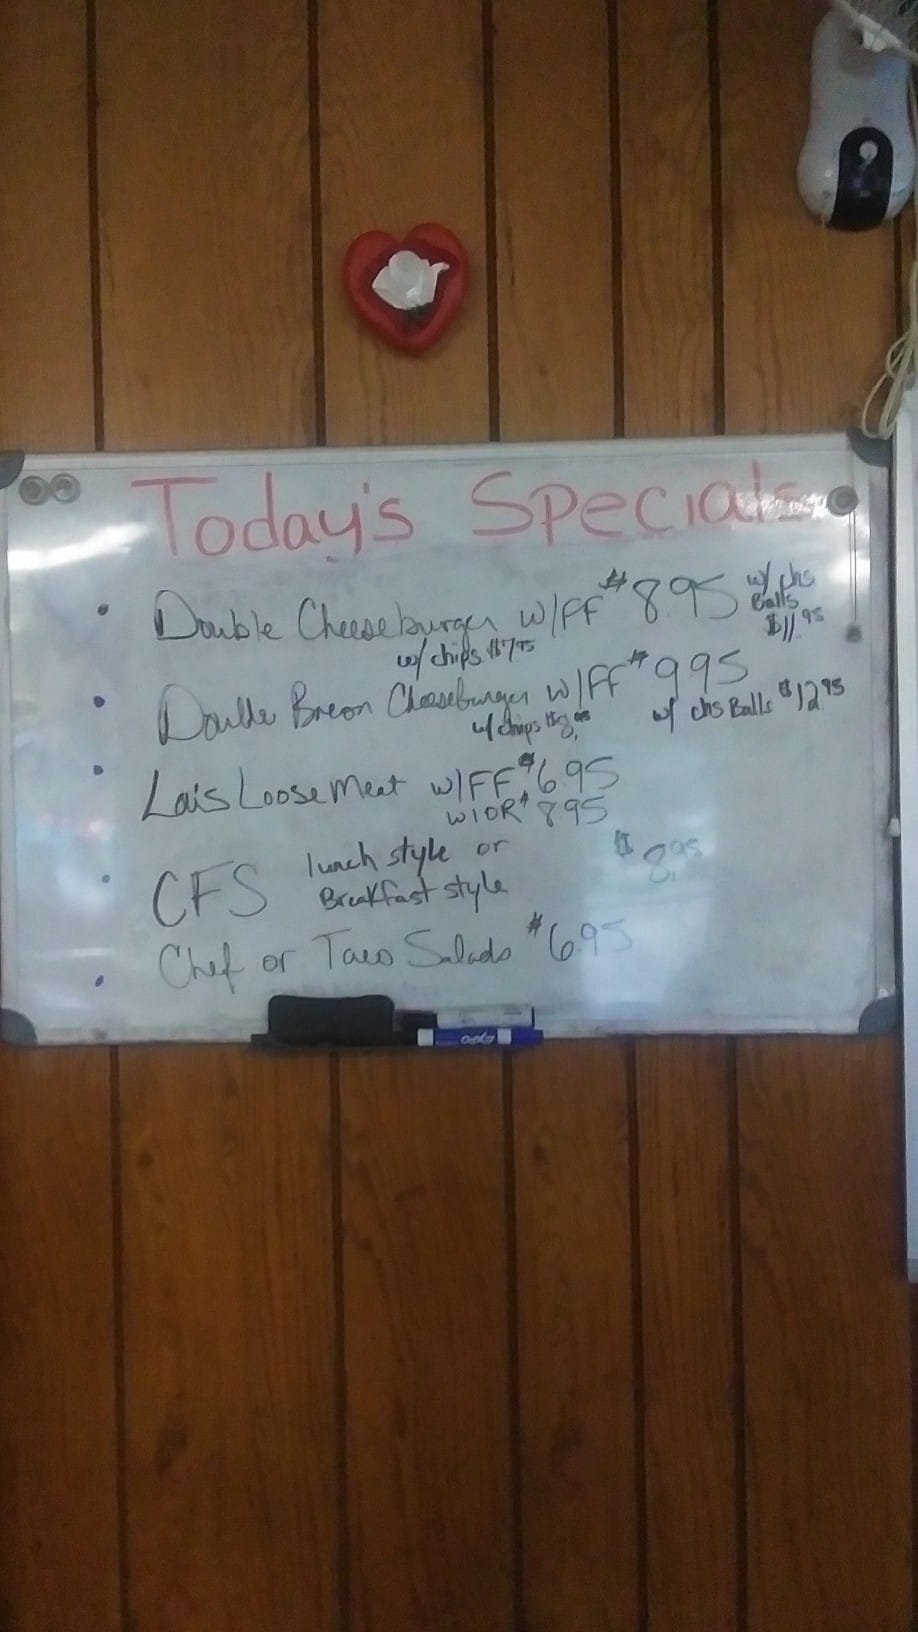 Today's Specials
• Double Cheeseburger w/FF $8.95 w/ chs Balls $11.95
w/ chips $7.95
• Double Bacon Cheeseburger w/FF $9.95
w/ chips $8.95 w/ chs Balls $12.95
• Lois Loose Meat w/FF $6.95
w/OR $8.95
• CFS lunch style or Breakfast style $8.95
• Chef or Taco Salads $6.95
EXPO